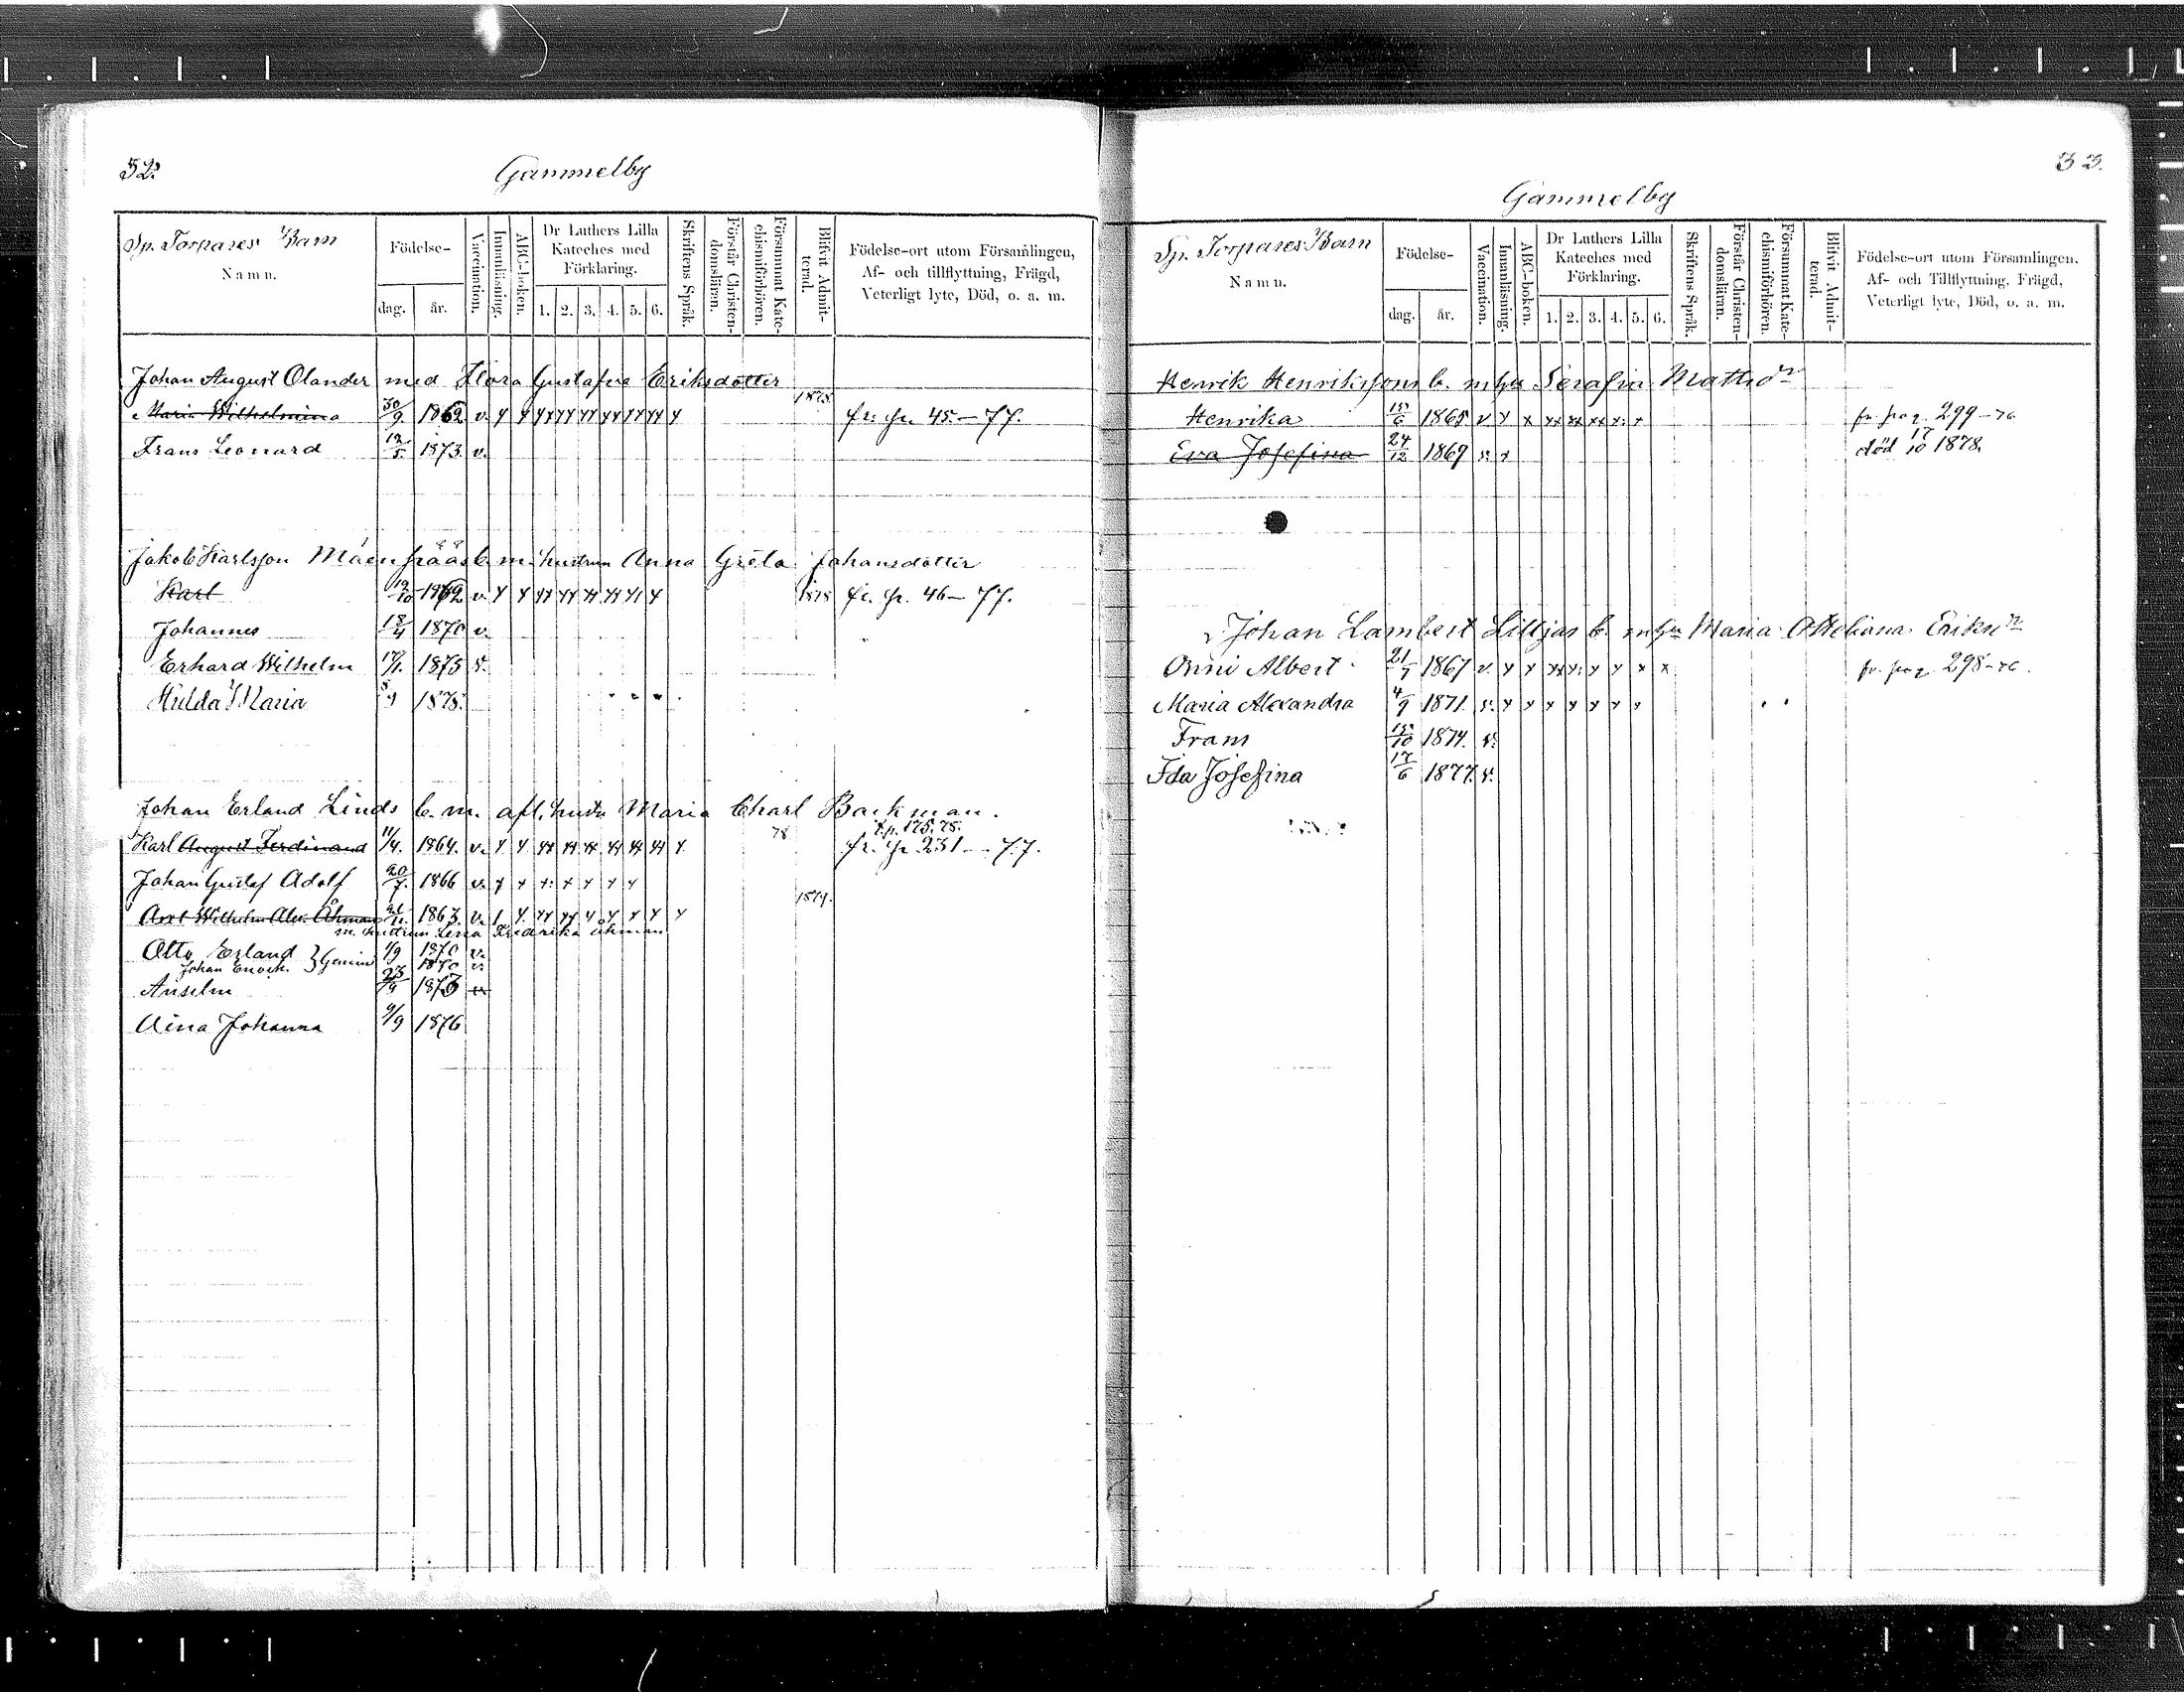 32.
Gammelby
Sp. Torpares Barn
Namn.
Födelse-
dag. år.
Vaccination.
Innanläsning.
ABC-boken.
Dr Luthers Lilla
Kateches med
Förklaring.
1. 2. 3. 4. 5. 6.
Skriftens Språk.
Förstår Christen-
domsläran.
Försummat Kate-
chismiförhören.
Blifvit Admit-
terad.
Födelse-ort utom Församlingen,
Af- och tillflyttning, Frägd,
Veterligt lyte, Död, o. a. m.
Johan August Olander med Flora Gustafva Eriksdotter
Maria Wilhelmina 30/9 1862 v. x x xx xx xx xx xx xx x 1878 fr. p. 45.-77.
Frans Leonard 12/5 1873 v.
Jakob Karlsson Mäenpääs b. m. hustrun Anna Greta Johansdotter
Karl 19/10 1862 v. x x xx xx xx xx xx x 1878 fr. p. 46-77.
Johannes 18/4 1870 v.
Erhard Wilhelm 1875 v.
Hulda Maria 1878.
Johan Erland Linds b. m. afl. hustr Maria Charl Backman.
t.p. 175. 78.
Karl August Ferdinand 11/4. 1864. v. x x xx xx xx xx xx xx x 78 fr. p. 231-77.
Johan Gustaf Adolf 20/7. 1866 v. x x x x x x x
Axel Wilhelm Alex. Åhman 1863 v. 1879.
m. hustrun Lena Fredrika Åhman
Otto Erland } Gemini 1/9 1870 v.
Johan Enoch. 1870 v.
Anselm 23/9 1873
Aina Johanna 9/9 1876
33.
Gammelby
Sp. Torpares Barn
Namn.
Födelse-
dag. år.
Vaccination.
Innanläsning.
ABC-boken.
Dr Luthers Lilla
Kateches med
Förklaring.
1. 2. 3. 4. 5. 6.
Skriftens Språk.
Förstår Christen-
domsläran.
Försummat Kate-
chismiförhören.
Blifvit Admit-
terad.
Födelse-ort utom Församlingen,
Af- och Tillflyttning, Frägd,
Veterligt lyte, Död, o. a. m.
Henrik Henrikssons b. m hu Serafia Mattsdr
Henrika 15/6 1865 v x x xx xx xx x x fr. pag. 299-76
Eva Josefina 24/12 1869 v. x död 17/10 1878.
Johan Lambert Liljas b. m hu Maria Eriksdr
Onni Albert 21/7 1867 v. x x xx x x x x x fr. pag 298-76.
Maria Alexandra 4/9 1871. v. x x x x x x x
Frans 15/10 1874. v.
Ida Josefina 17/6 1877. v.